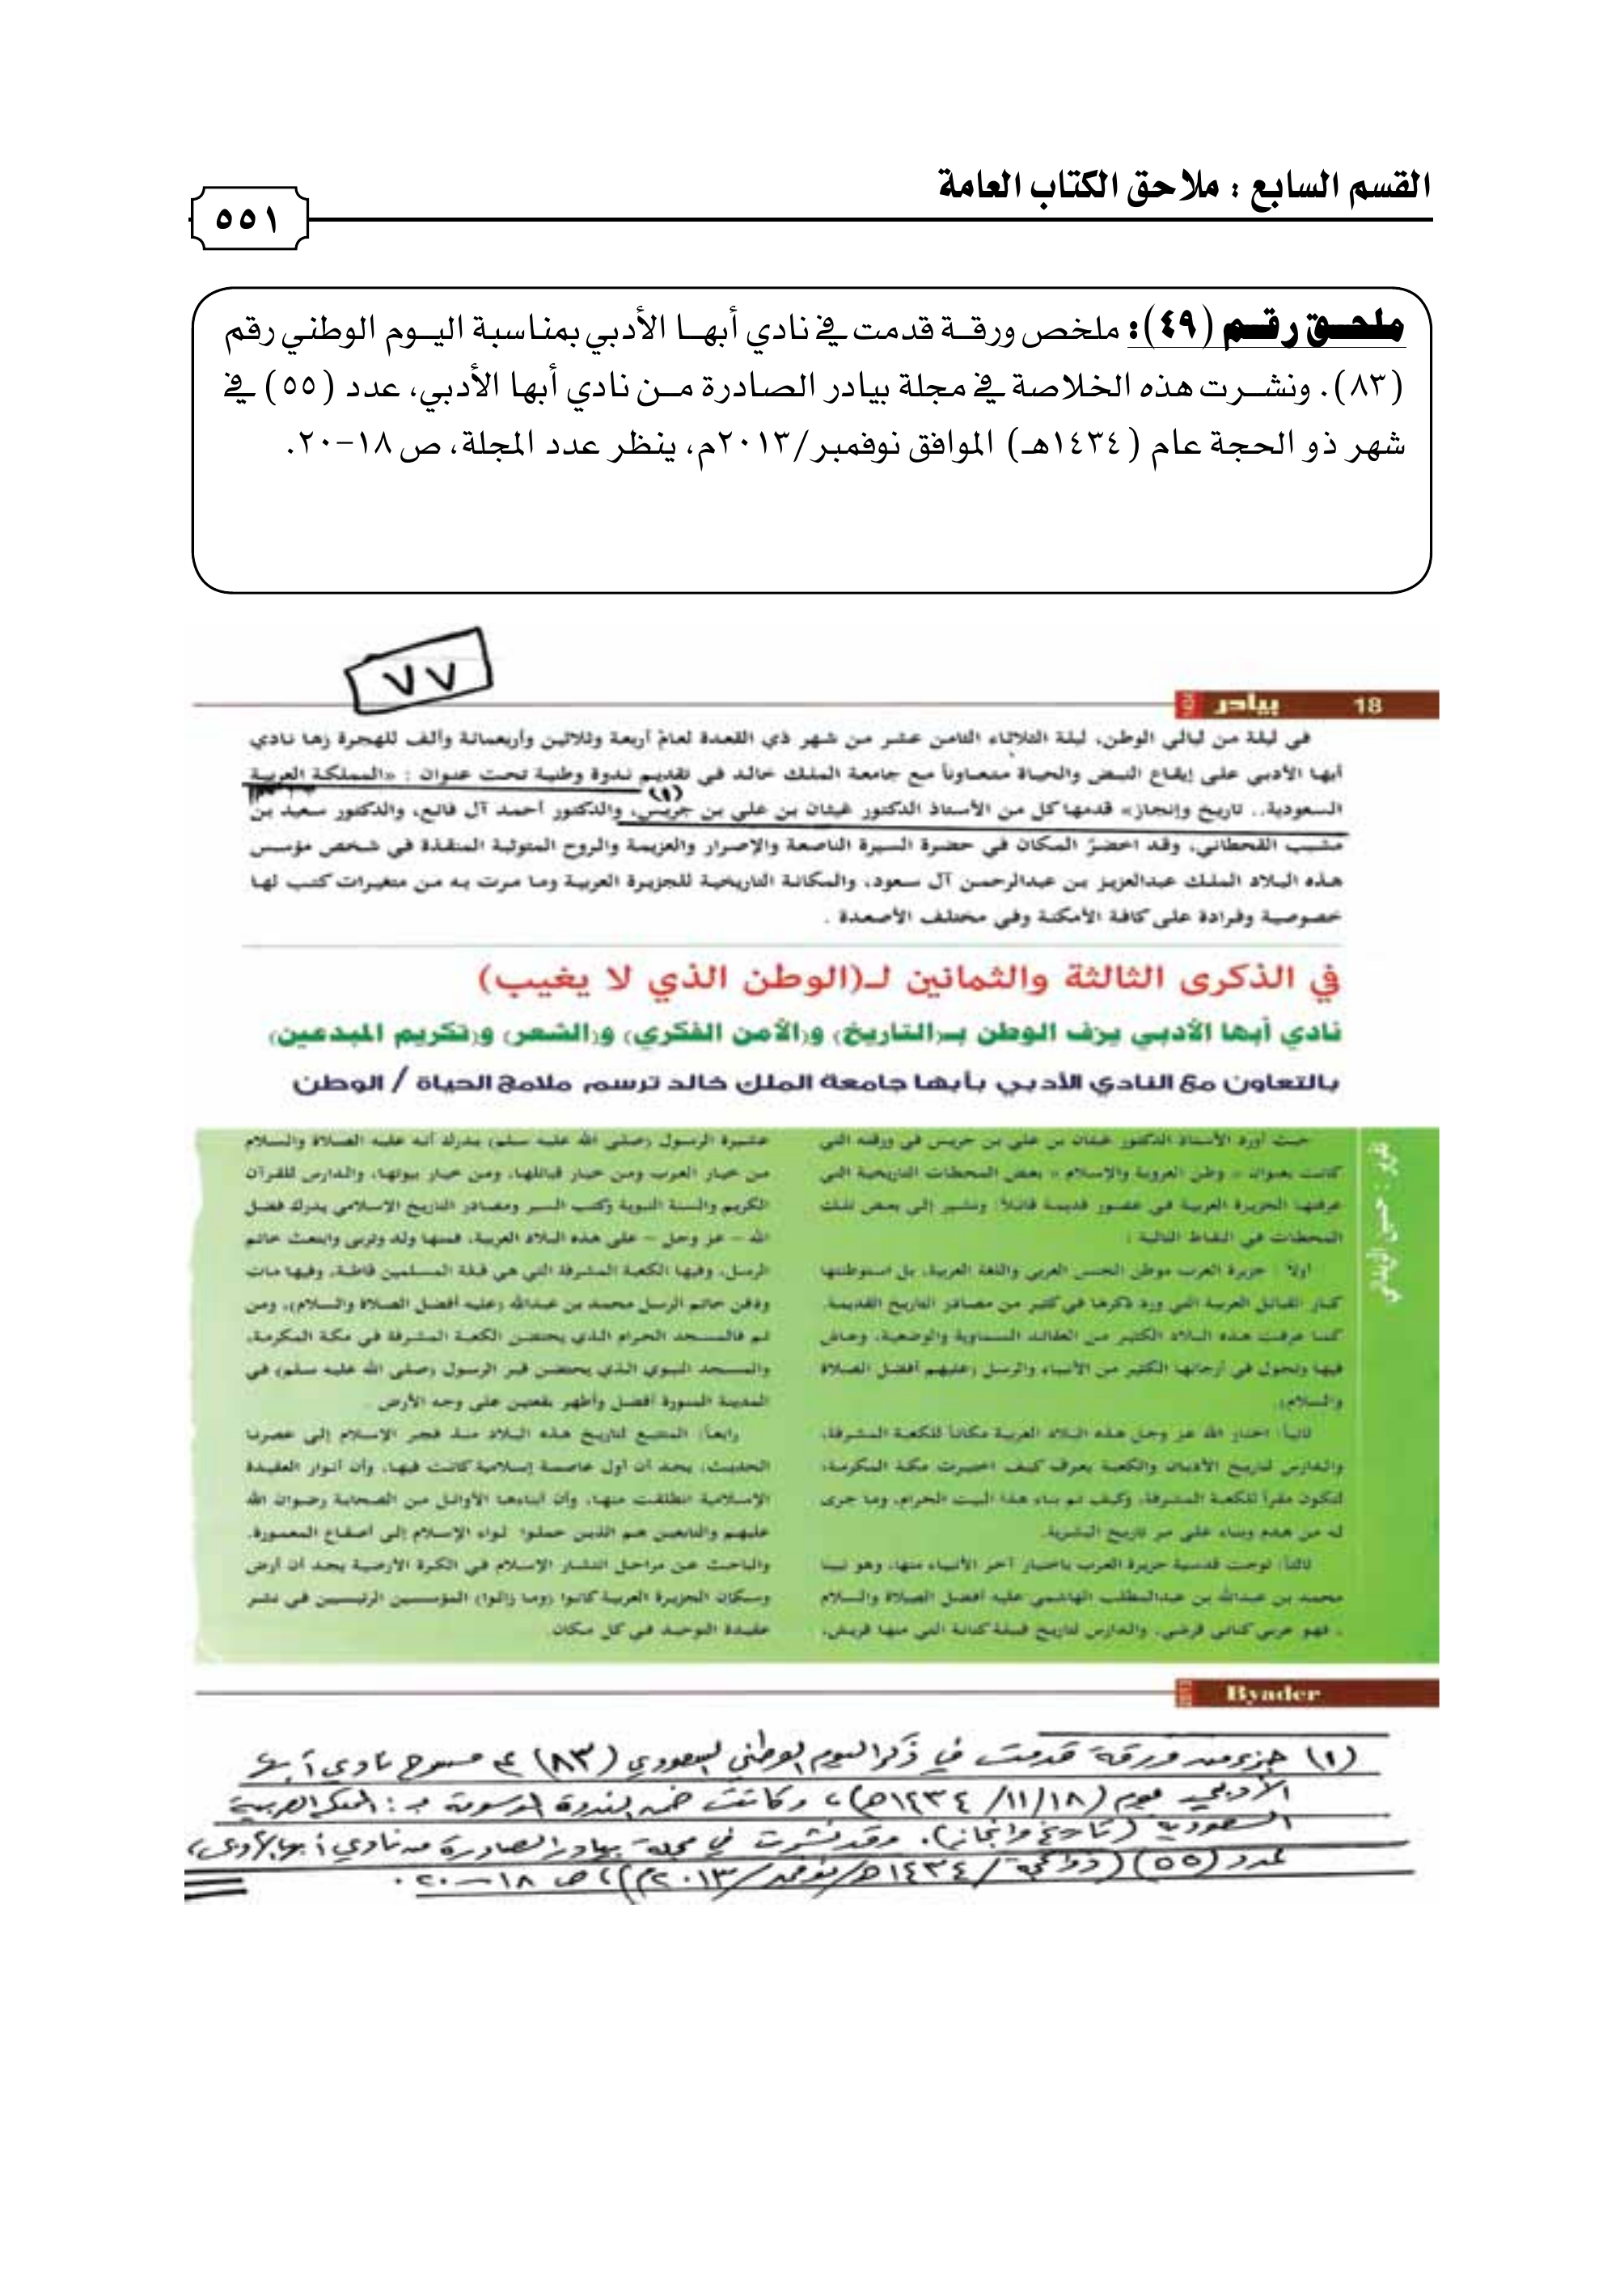 القسم السابع : ملاحق الكتاب العامة
٥٥١
ملحق رقم (٤٩): ملخص ورقة قدمت في نادي أبها الأدبي بمناسبة اليوم الوطني رقم
(٨٣). ونشرت هذه الخلاصة في مجلة بيادر الصادرة من نادي أبها الأدبي، عدد (٥٥) في
شهر ذو الحجة عام (١٤٣٤هـ) الموافق نوفمبر/٢٠١٣م، ينظر عدد المجلة، ص ١٨-٢٠.
٧٧
18 بيادر
في ليلة من ليالي الوطن، ليلة الثلاثاء الثامن عشر من شهر ذي القعدة لعام أربعة وثلاثين وأربعمائة وألف للهجرة زها نادي
أبها الأدبي على إيقاع النبض والحياة متعاوناً مع جامعة الملك خالد في تقديم ندوة وطنية تحت عنوان : «المملكة العربية
(١)
السعودية.. تاريخ وإنجاز» قدمها كل من الأستاذ الدكتور غيثان بن علي بن جريس، والدكتور أحمد آل فائع، والدكتور سعيد بن
مشبب القحطاني، وقد اخضرّ المكان في حضرة السيرة الناصعة والإصرار والعزيمة والروح المتوثبة المنقذة في شخص مؤسس
هذه البلاد الملك عبدالعزيز بن عبدالرحمن آل سعود، والمكانة التاريخية للجزيرة العربية وما مرت به من متغيرات كتب لها
خصوصية وفرادة على كافة الأمكنة وفي مختلف الأصعدة .
في الذكرى الثالثة والثمانين لـ(الوطن الذي لا يغيب)
نادي أبها الأدبي يزف الوطن بـ(التاريخ) و(الأمن الفكري) و(الشعر) و(تكريم المبدعين)
بالتعاون مع النادي الأدبي بأبها جامعة الملك خالد ترسم ملامح الحياة / الوطن
حيث أورد الأستاذ الدكتور غيثان بن علي بن جريس في ورقته التي
كانت بعنوان « وطن العروبة والإسلام » بعض المحطات التاريخية التي
عرفتها الجزيرة العربية في عصور قديمة قائلاً: ونشير إلى بعض تلك
المحطات في النقاط التالية :
أولاً : جزيرة العرب موطن الجنس العربي واللغة العربية، بل استوطنتها
كبار القبائل العربية التي ورد ذكرها في كثير من مصادر التاريخ القديمة.
كما عرفت هذه البلاد الكثير من العقائد السماوية والوضعية، وعاش
فيها وتجول في أرجائها الكثير من الأنبياء والرسل (عليهم أفضل الصلاة
والسلام).
ثانياً: اختار الله عز وجل هذه البلاد العربية مكاناً للكعبة المشرفة،
والدارس لتاريخ الأديان والكعبة يعرف كيف اختيرت مكة المكرمة،
لتكون مقراً للكعبة المشرفة، وكيف تم بناء هذا البيت الحرام، وما جرى
له من هدم وبناء على مر تاريخ البشرية.
ثالثاً: توجت قدسية جزيرة العرب باختيار آخر الأنبياء منها، وهو نبينا
محمد بن عبدالله بن عبدالمطلب الهاشمي عليه أفضل الصلاة والسلام
، فهو عربي كناني قرشي، والدارس لتاريخ قبيلة كنانة التي منها قريش،
عشيرة الرسول (صلى الله عليه سلم) يدرك أنه عليه الصلاة والسلام
من خيار العرب ومن خيار قبائلها، ومن خيار بيوتها، والدارس للقرآن
الكريم والسنة النبوية وكتب السير ومصادر التاريخ الإسلامي يدرك فضل
الله – عز وجل – على هذه البلاد العربية، فمنها ولد وتربى وابتعث خاتم
الرسل، وفيها الكعبة المشرفة التي هي قبلة المسلمين قاطبة، وفيها مات
ودفن خاتم الرسل محمد بن عبدالله (عليه أفضل الصلاة والسلام)، ومن
ثم فالمسجد الحرام الذي يحتضن الكعبة المشرفة في مكة المكرمة،
والمسجد النبوي الذي يحتضن قبر الرسول (صلى الله عليه سلم) في
المدينة المنورة أفضل وأطهر بقعتين على وجه الأرض
رابعاً: المتتبع لتاريخ هذه البلاد منذ فجر الإسلام إلى عصرنا
الحديث، يجد أن أول عاصمة إسلامية كانت فيها، وأن أنوار العقيدة
الإسلامية انطلقت منها، وأن أبناءها الأوائل من الصحابة رضوان الله
عليهم والتابعين هم الذين حملوا لواء الإسلام إلى أصقاع المعمورة.
والباحث عن مراحل انتشار الإسلام في الكرة الأرضية يجد أن أرض
وسكان الجزيرة العربية كانوا (وما زالوا) المؤسسين الرئيسيين في نشر
عقيدة التوحيد في كل مكان.
Byader
(١) جزء من ورقة قدمت في ذكرا اليوم الوطني السعودي (٨٣) مسرح نادي أبها
الأدبي يوم (١٨/١١/١٤٣٤هـ)، وكانت ضمن الندوة الموسومة بـ : المملكة العربية
السعودية (تاريخ وإنجاز). وقد نشرت في مجلة بيادر الصادرة من نادي أبها الأدبي،
عدد (٥٥) (ذو الحجة / ١٤٣٤هـ/نوفمبر/٢٠١٣م)، ص ١٨-٢٠.